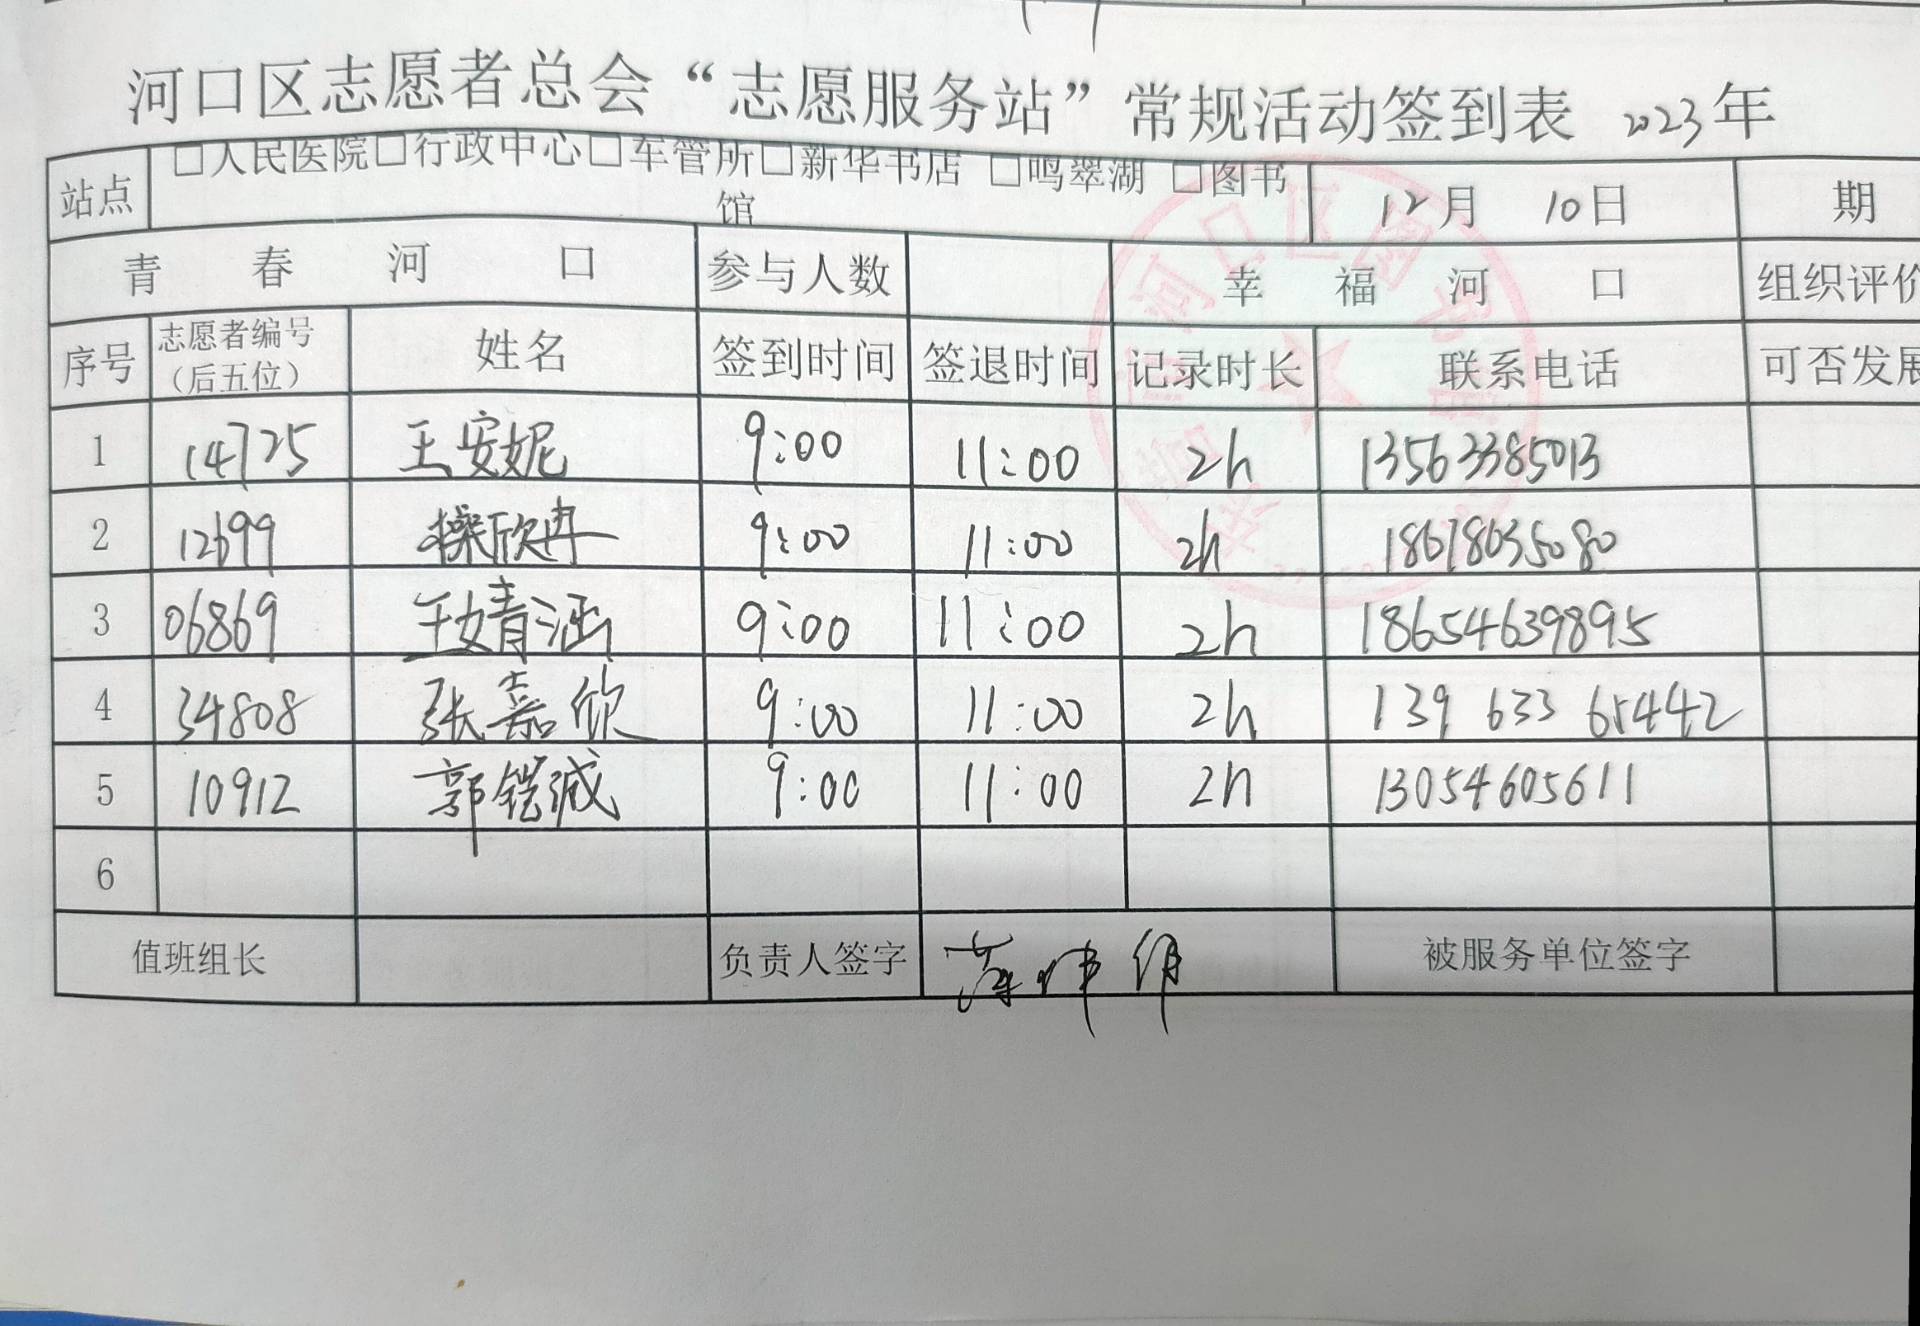 河口区志愿者总会“志愿服务站”常规活动签到表 2023年
站点 □人民医院□行政中心□车管所□新华书店 □鸣翠湖 □图书馆 12月 10日 期
青春河口 参与人数 幸福河口 组织评价
序号 志愿者编号（后五位） 姓名 签到时间 签退时间 记录时长 联系电话 可否发展
1 14725 王安妮 9:00 11:00 2h 13563385013
2 12699 操欣冉 9:00 11:00 2h 18678635080
3 06869 王婧涵 9:00 11:00 2h 18654639895
4 34808 张嘉欣 9:00 11:00 2h 139 633 65442
5 10912 郭铠诚 9:00 11:00 2h 13054605611
6
值班组长 负责人签字 被服务单位签字